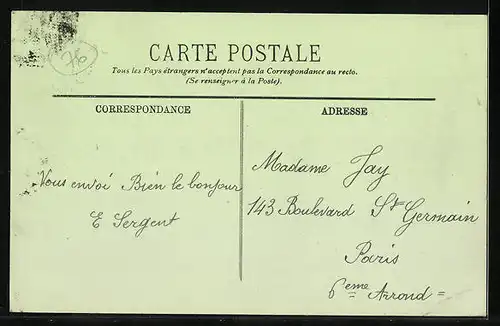 76
CARTE POSTALE
Tous les Pays étrangers n'acceptent pas la Correspondance au recto.
(Se renseigner à la Poste).
CORRESPONDANCE
Vous envoi Bien le bonjour
E Sergent
ADRESSE
Madame Jay
143 Boulevard St Germain
Paris
6eme Arrond=